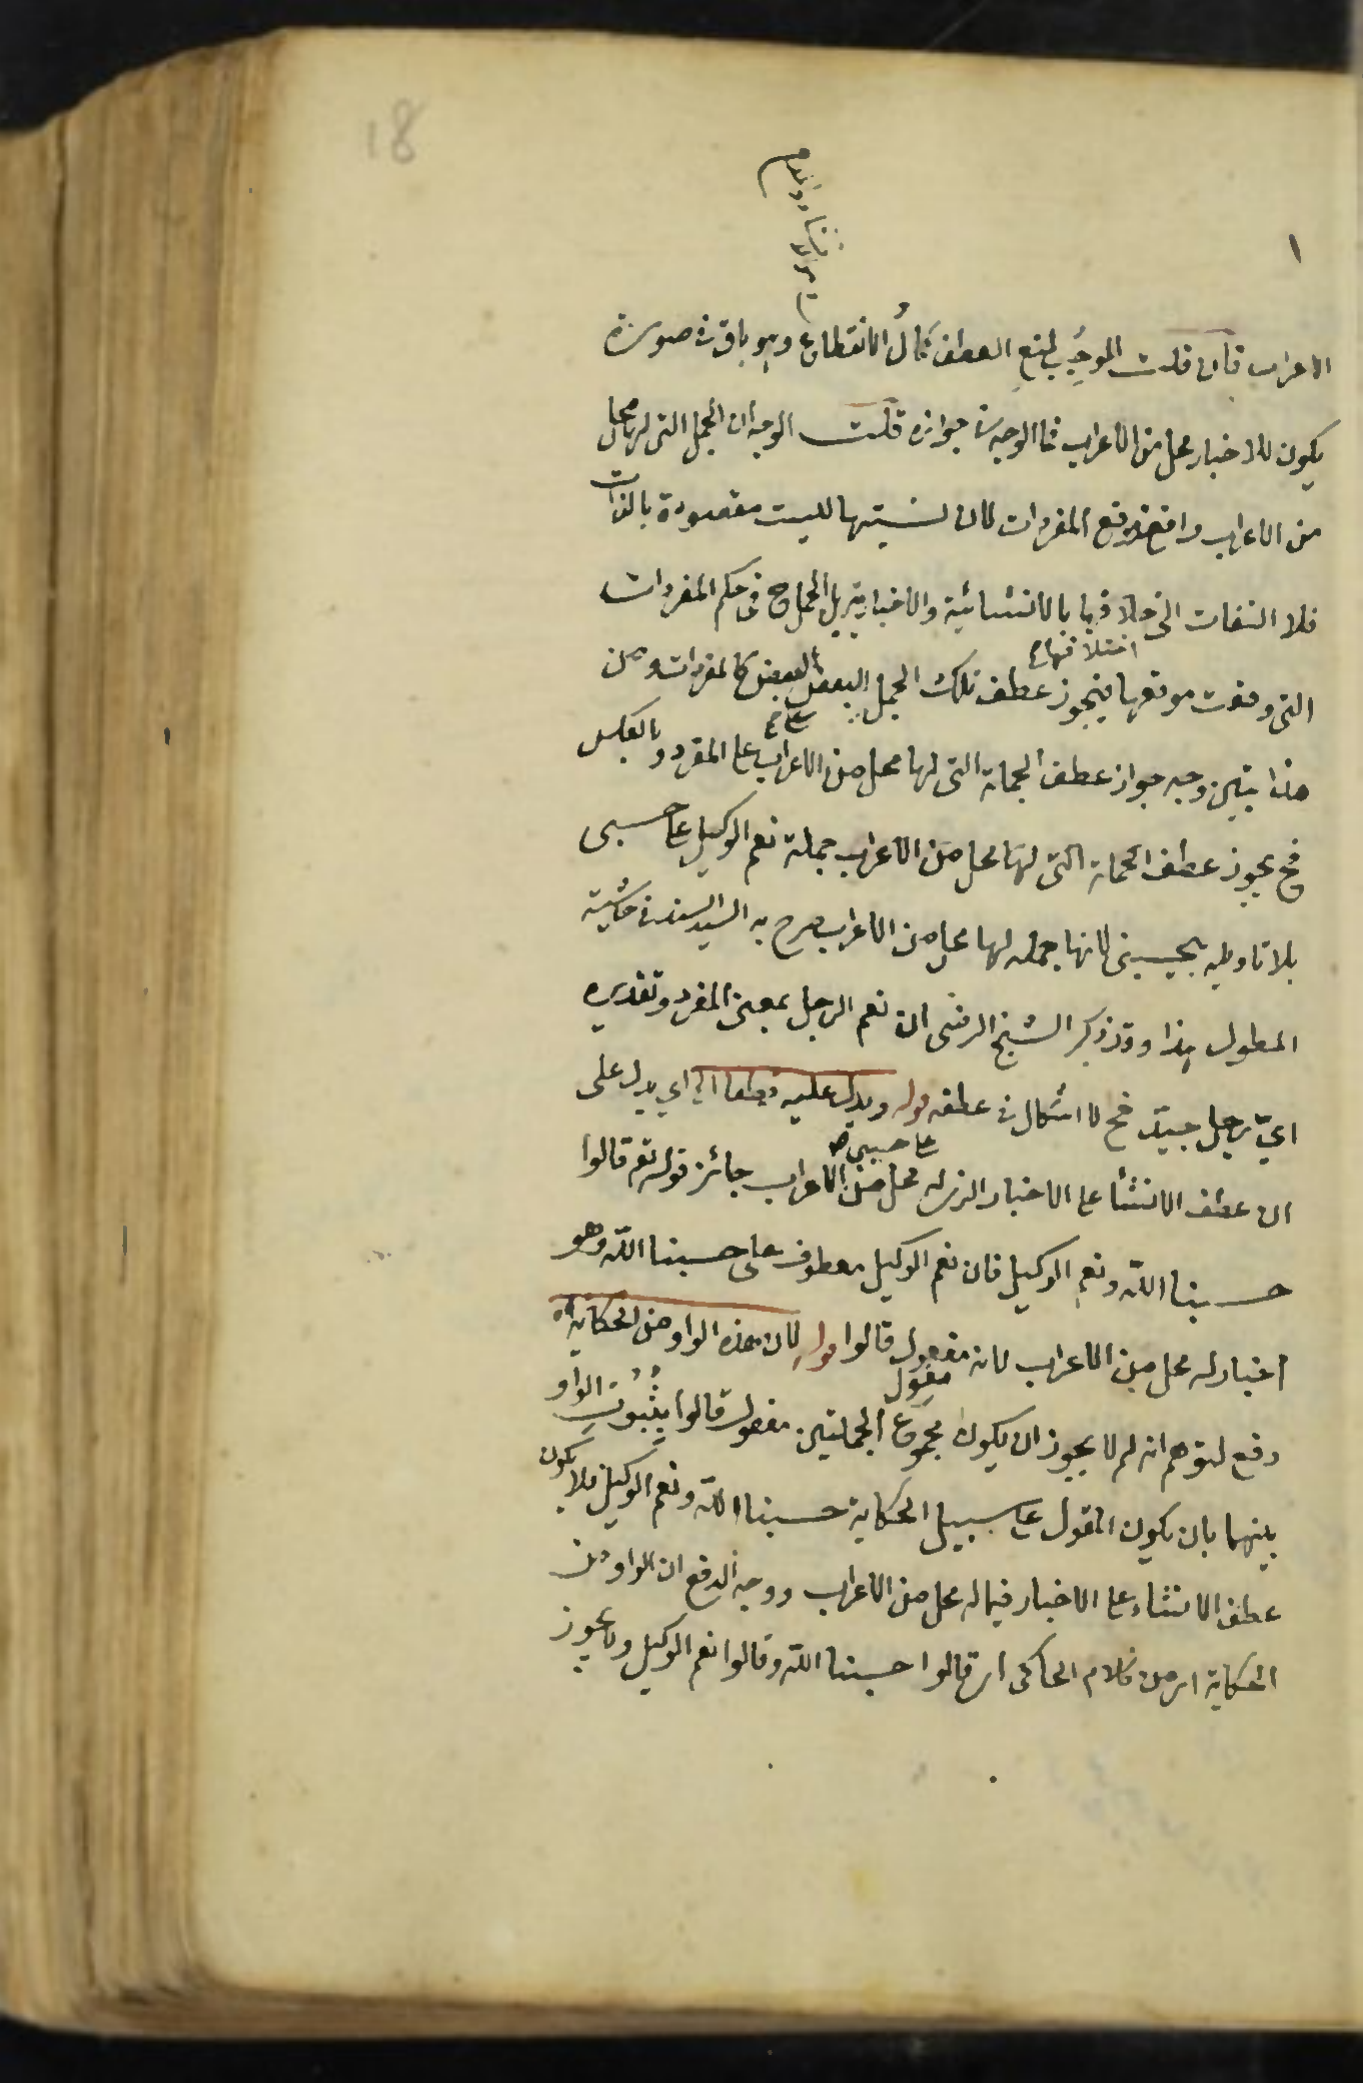 18
١
الاعراب فان قلت الموجب لمنع العطف كمال الانقطاع وهو باق في صورة
يكون للاخبار محل من الاعراب فما الوجه في جوازه قلت الوجه ان الجمل التي لها محل
من الاعراب واقع موقع المفردات لان نسبتها ليست مقصودة بالذات
فلا التفات الى اختلافها بالانشائية والاخبارية بل الجمل ح في حكم المفردات
اختلافها
التي وقعت موقعها فيجوز عطف تلك الجمل البعض البعض كالمفردات ومن
على
هذا تبين وجه جواز عطف الجملة التي لها محل من الاعراب على المفرد وبالعكس
فح يجوز عطف الجملة التي لها محل من الاعراب جملة نعم الوكيل على حسبي
بلا تاويله بيحسبني لانها جملة لها محل من الاعراب صرح به السيد السند في حاشية
المطول هذا وقد ذكر الشيخ الرضى ان نعم الرجل بمعنى المفرد وتقديره
اي رجل جيد فح لا اشكال في عطفه قوله ويدل عليه قطعا الخ اي يدل على
على حسبي
ان عطف الانشا على الاخبار الذي له محل من الاعراب جائز قوله تع قالوا
حسبنا الله ونعم الوكيل فان نعم الوكيل معطوف على حسبنا الله وهو
اخبار له محل من الاعراب لانه مفعول قالوا قوله لان هذه الواو من الحكاية اه
مقول
دفع لتوهم انه لم لا يجوز ان يكون مجموع الجملتين مفعول قالوا بثبوت الواو
بينهما بان يكون المقول على سبيل الحكاية حسبنا الله ونعم الوكيل فلا يكون
عطف الانشاء على الاخبار فيما له محل من الاعراب ووجه الدفع ان الواو من
الحكاية اي من كلام الحاكى اي قالوا حسبنا الله وقالوا نعم الوكيل ولا يجوز